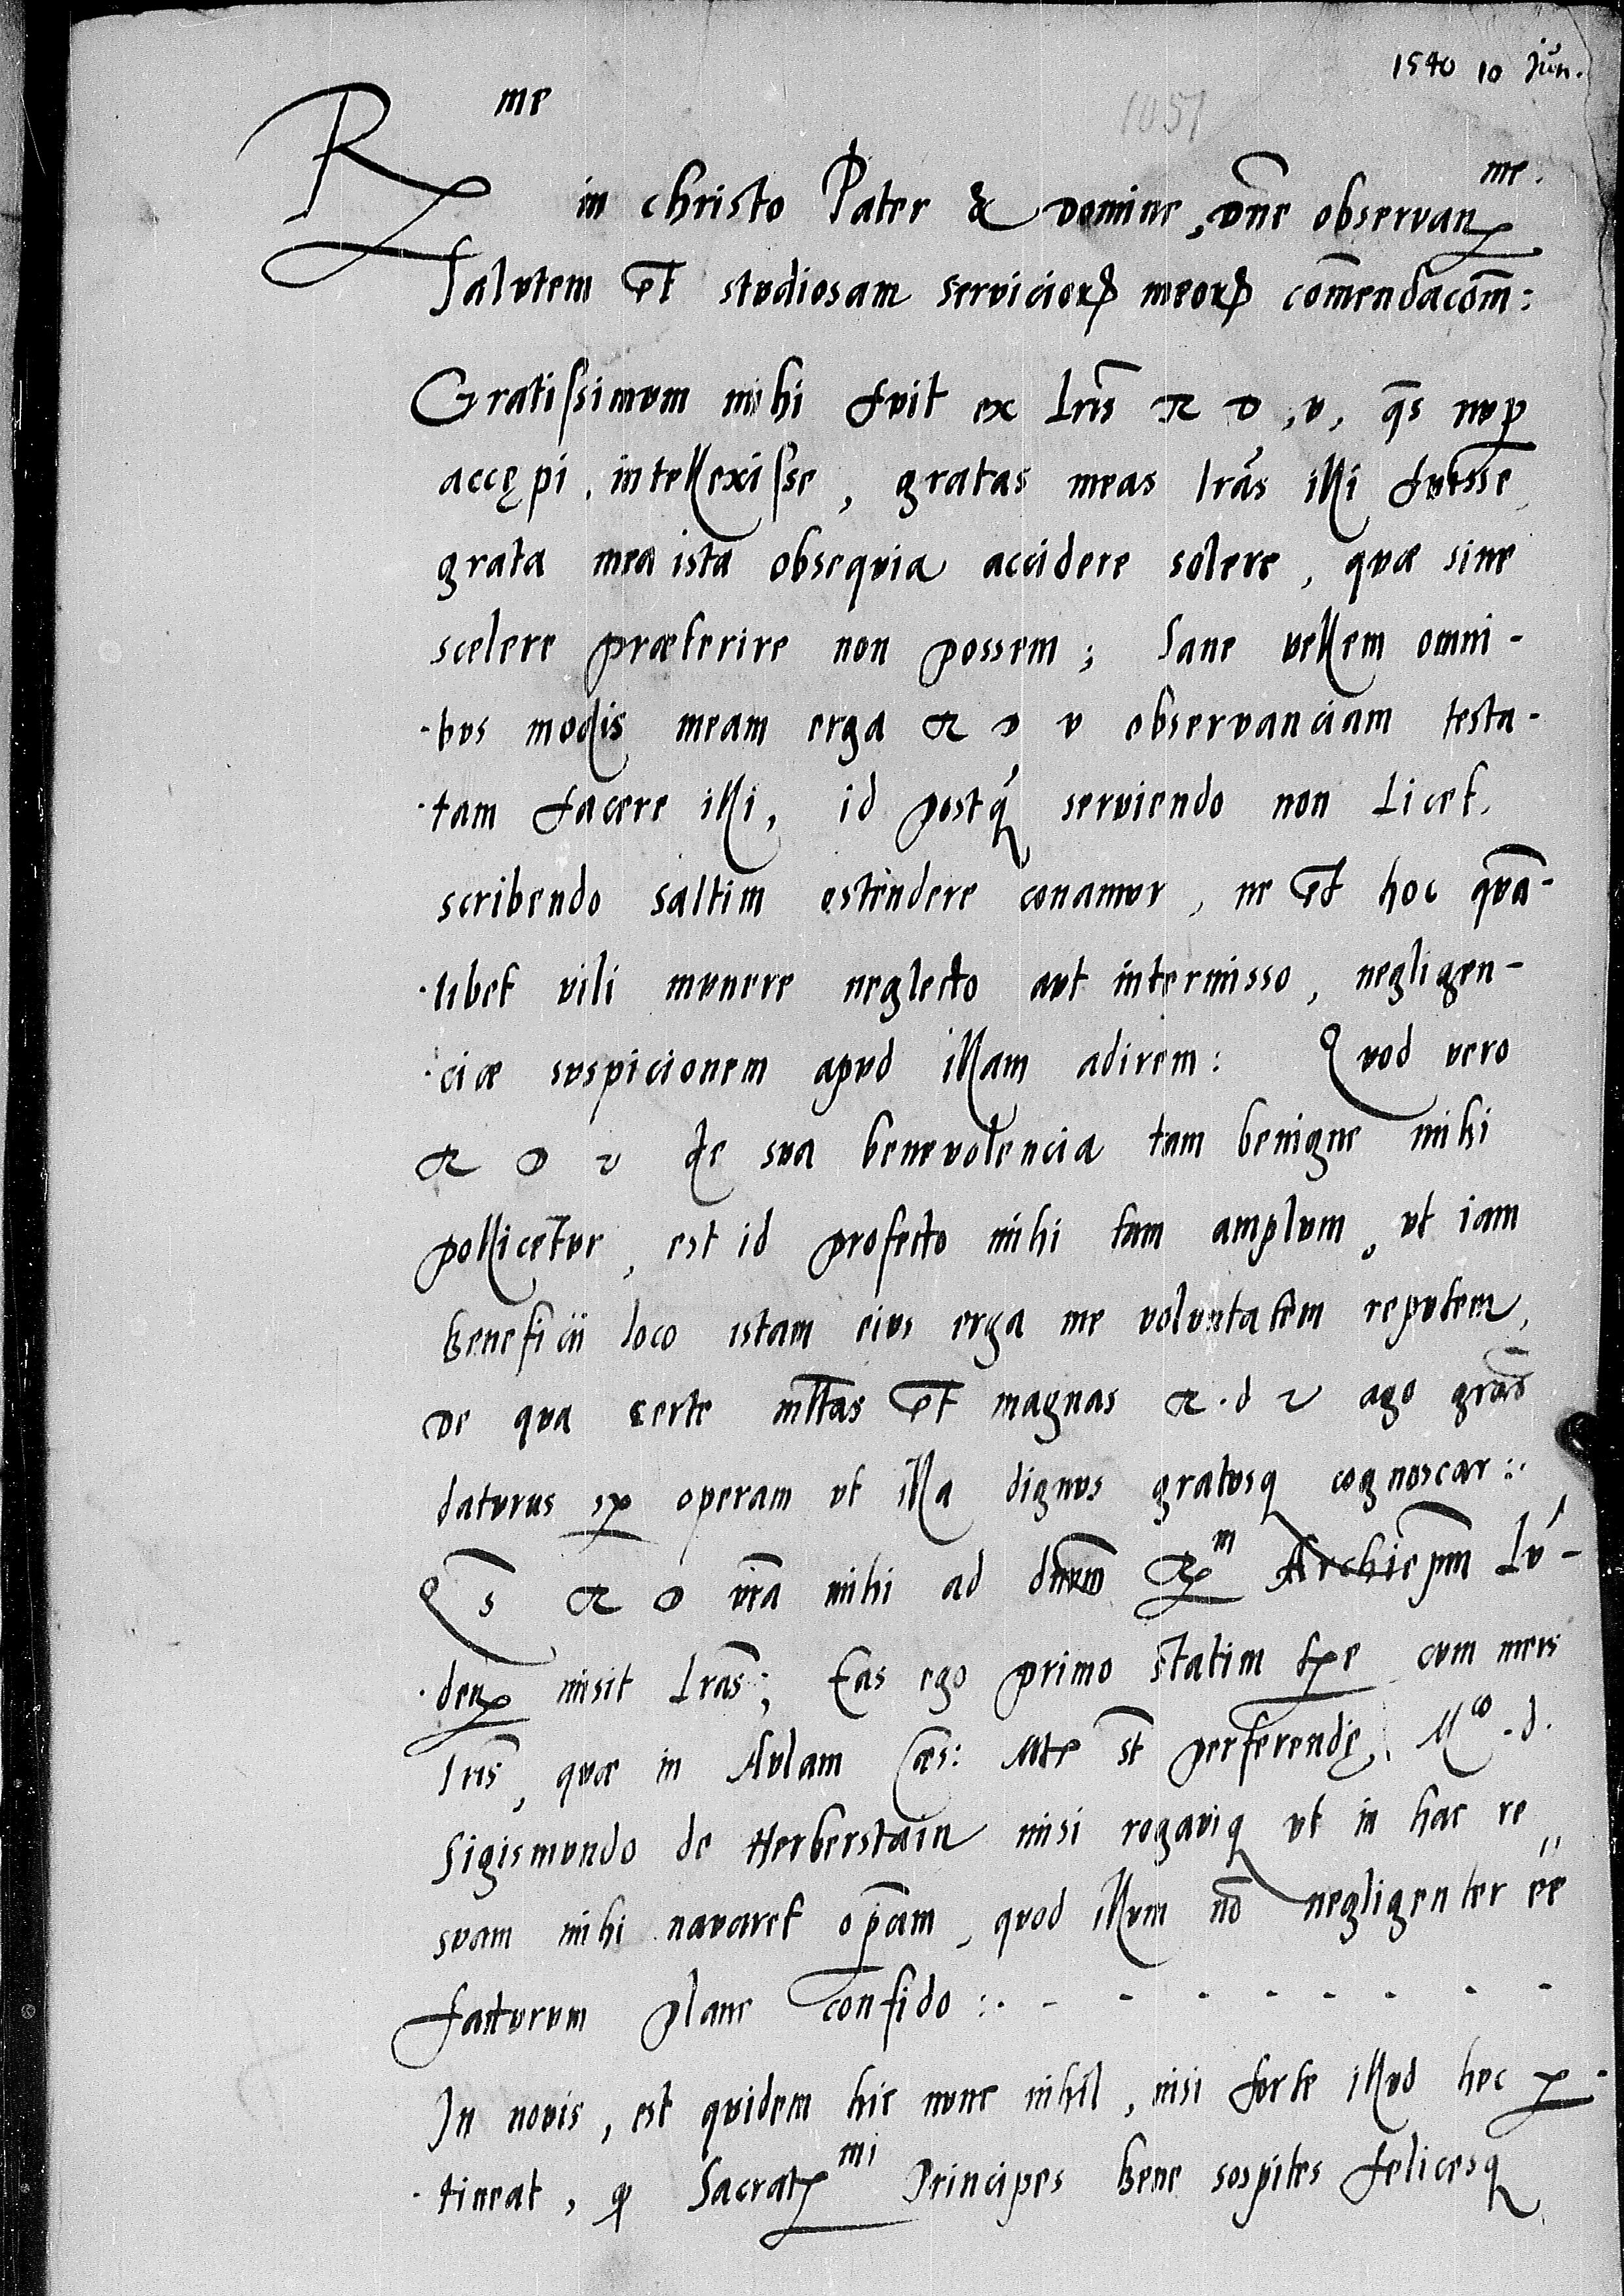 1540 10 Jun.
1051
R me in christo Pater & domine, dne observan me.
Salutem et studiosam serviciorum meorum comendacom:
Gratissimum mihi fuit ex Lris R D, v, qs nup
accępi, intellexisse, gratas meas lras illi fuisse
grata mea ista obsequia accidere solere, quæ sine
scelere præterire non possem; Sane vellem omni-
-bus modis meam erga R D V observanciam testa-
-tam facere illi, id postq serviendo non Licet,
scribendo saltim ostendere conamur, ne et hoc qua-
-libet vili munere neglecto aut intermisso, negligen-
-ciæ suspicionem apud illam adirem: Quod vero
R D V de sua benevolencia tam benigne mihi
pollicetur, est id profecto mihi tam amplum, ut iam
beneficii loco istam eius erga me voluntatem reputem,
de qua certe mltas et magnas R. d V ago gras
daturus sp operam ut illa dignus gratusq cognoscar:.
Qs R D vra mihi ad dnum R m Archiepm Lu-
-den misit Lras; Eas ego primo statim tpe cum meis
lris, quæ in Aulam Cæs: Mte st perferendę, M co. d.
Sigismundo de Herberstain misi rogaviq ut in hac re
suam mihi navaret opam, quod illum no negligenter ee
facturum plane confido:. - - - - - - - -
In novis, est quidem hic nunc nihil, nisi forte illud huc p-
-tineat, q Sacrat mi Principes bene sospites felicesq